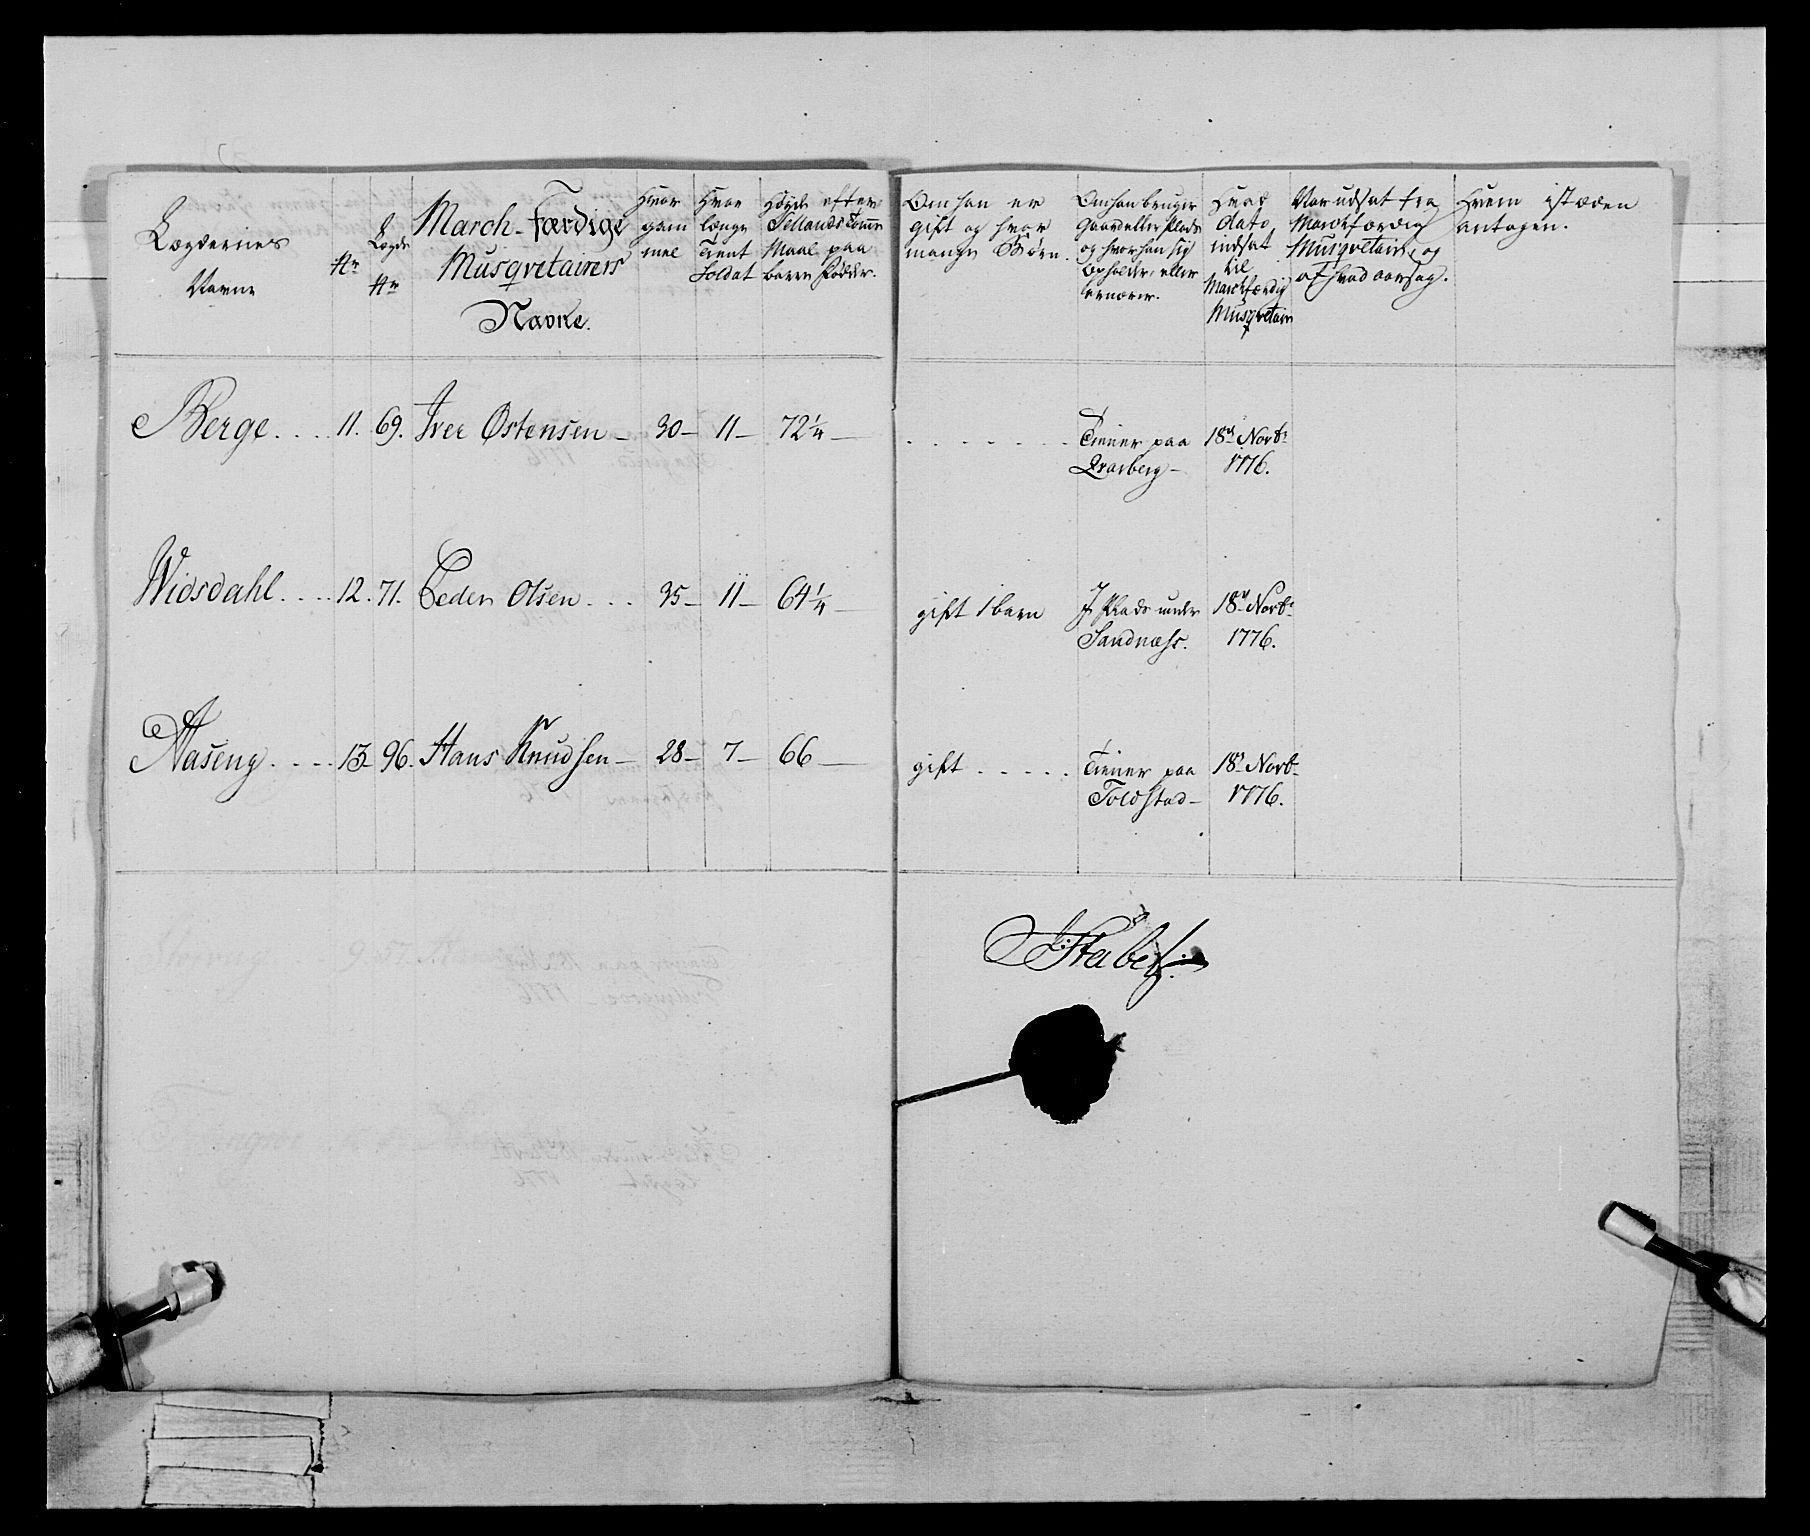 Lægdernes
Navne
Nr
Lægds
Nr
March-Færdige
Musqvetairers
Navne.
Hvor
gam
mel
Hvor
længe
Tient
Soldat
Høyde efter
Sellands Tomme
Maal paa
barre Fødder.
Om han er
gift og hvor
mange Børn.
Om han bruger
Gaard eller Plads
og hvor han sig
opholder, eller
ernærer.
Hvad
Dato
indsat
til
Marchfærdig
Musqvetair
Naar udsat fra
Marchfærdig
Musqvetair, og
af hvad aarsag.
Hvem i stæden
antagen.
Berge.... 11. 69. Iver Østensen - 30 - 11 - 72 1/4 - . . . . . . . Tiener paa 18de Novbr
Qvarberg - 1776.
Widsdahl.... 12. 71. Peder Olsen... 35 - 11 - 64 1/4 - gift 1 barn J Plads under 18de Novbr
Sandnæss. 1776.
Aaseng.... 13 - 96. Hans Knudsen - 28 - 7 - 66 - gift..... Tiener paa 18de Novbr
Toldstad - 1776.